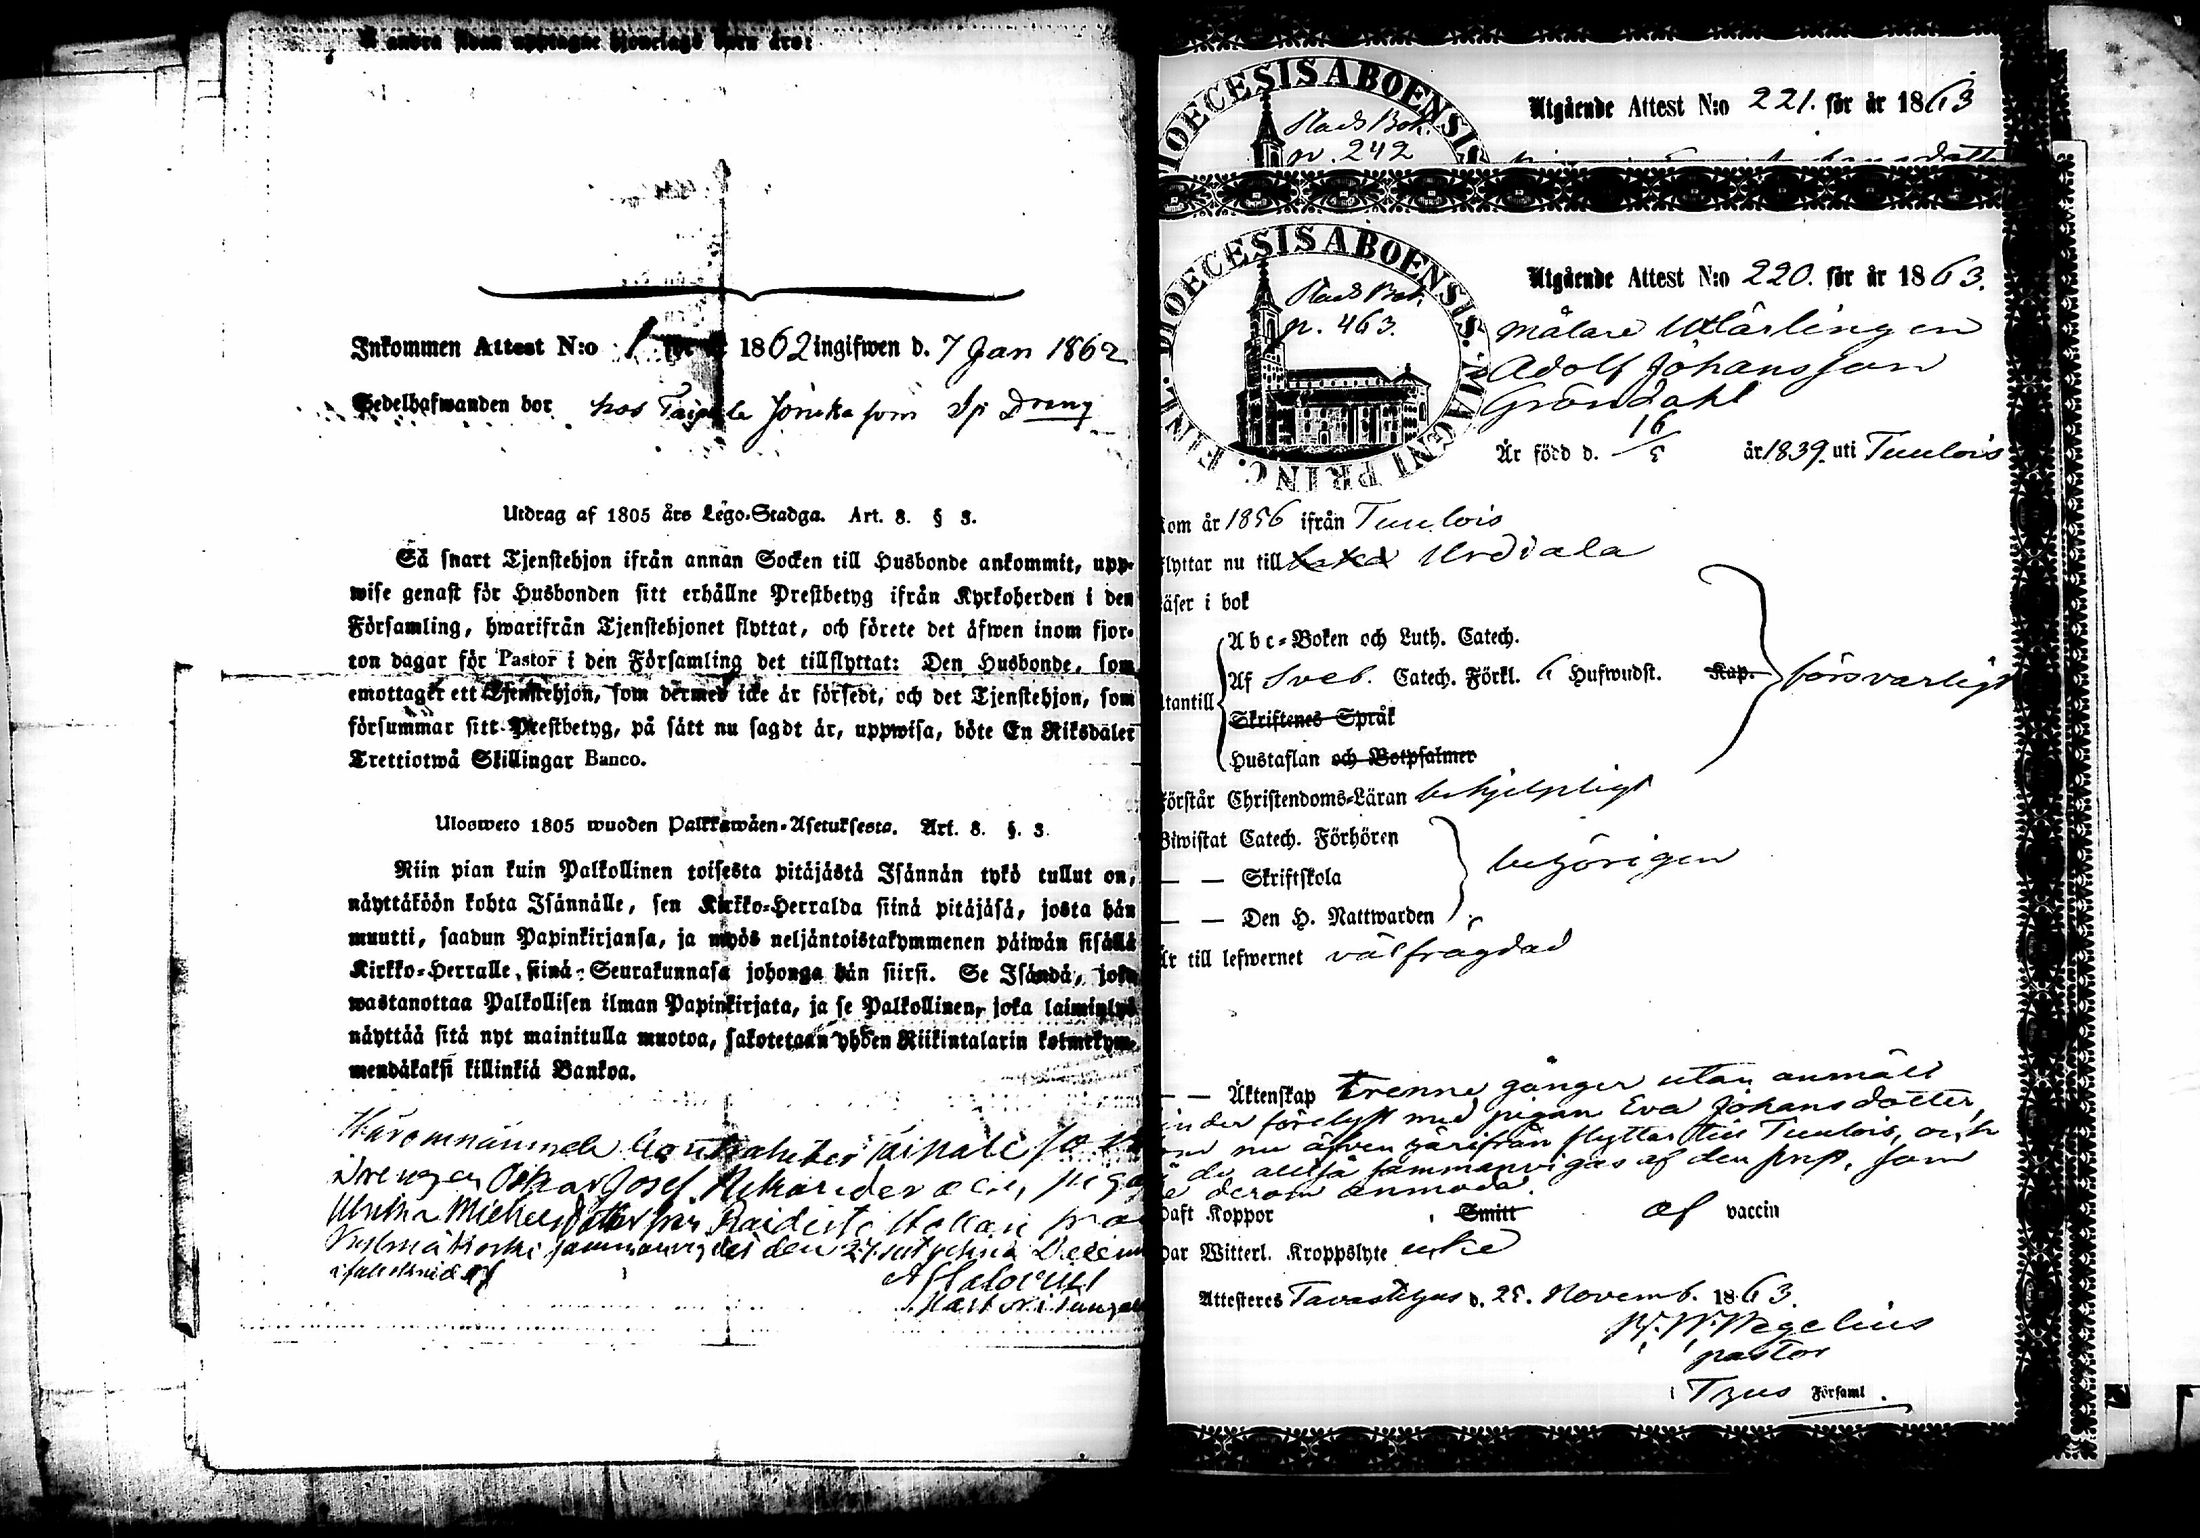 Å andra sidan upptagne tjenstags barn äro:
Inkommen Attest N:o 1 för år 1862 ingifwen d. 7 Jan 1862
Sedelhafwanden bor hos Taipale Jöns som Dreng
Utdrag af 1805 års Lego-Stadga. Art. 8. § 3.
Så snart Tjenstehjon ifrån annan Socken till Husbonde ankommit, upp-
wise genast för Husbonden sitt erhållne Prestbetyg ifrån Kyrkoherden i den
Församling, hwarifrån Tjenstehjonet flyttat, och förete det äfwen inom fjor-
ton dagar för Pastor i den Församling det tillflyttat: Den Husbonde, som
emottager ett Tjenstehjon, som dermed icke är försedt, och det Tjenstehjon, som
försummar sitt Prestbetyg, på sätt nu sagdt är, uppwisa, böte En Riksdaler
Trettiotwå Skillingar Banco.
Ulosweto 1805 wuoden Palkkawäen-Asetuksesta. Art. 8. §. 3.
Niin pian kuin Palkollinen toisesta pitäjästä Isännän tykö tullut on,
näyttäköön kohta Isännälle, sen Kirkko-Herralda siinä pitäjäsä, josta hän
muutti, saadun Papinkirjansa, ja myös neljäntoistakymmenen päiwän sisällä
Kirkko-Herralle, siinä Seurakunnasa johonga hän siirsi. Se Isändä, joka
wastanottaa Palkollisen ilman Papinkirjata, ja se Palkollinen, joka laiminlyö
näyttää sitä nyt mainitulla muotoa, sakotetaan yhden Riikintalarin kolmekym-
mendäkaksi killinkiä Bankoa.
Häromnämnde
drengen Oskar Josef
Ulrika Michelsdotter från
sammanvigdes den 27
DIOECESIS ABOENSIS
Utgående Attest N:o 221. för år 1863
p. 242
DIOECESIS ABOENSIS. MAGNI PRINC. FINL.
p. 463.
Utgående Attest N:o 220. för år 1863.
Målare Lärlingen
Adolf Johansson
Gröndahl
Är född d. 16/5 år 1839. uti Tuulois
Kom år 1856 ifrån Tuulois
flyttar nu till Urdiala
läser i bok
Abc-Boken och Luth. Catech.
Utantill Af Sveb. Catech. Förkl. 6 Hufwudst. Kap. försvarligt
Skriftenes Språk
Hustaflan och Botpsalmer
Förstår Christendoms-Läran behjelpligt
Biwistat Catech. Förhören
— — Skriftskola behörigen
— — Den H. Nattwarden
Är till lefwernet välfrägdad
— — Äktenskap trenne gånger utan anmält
hinder förelyst med pigan Eva Johansdotter,
som nu äfven härifrån flyttar till Tuulois, och
de alltså sammanvigas af den prest, som
de derom anmoda.
haft Koppor Smitt af vaccin
har Witterl. Kroppslyte icke
Attesteras Tavastehus d. 25. Novemb. 1863.
Wegelius
pastor
i Thus Församl.